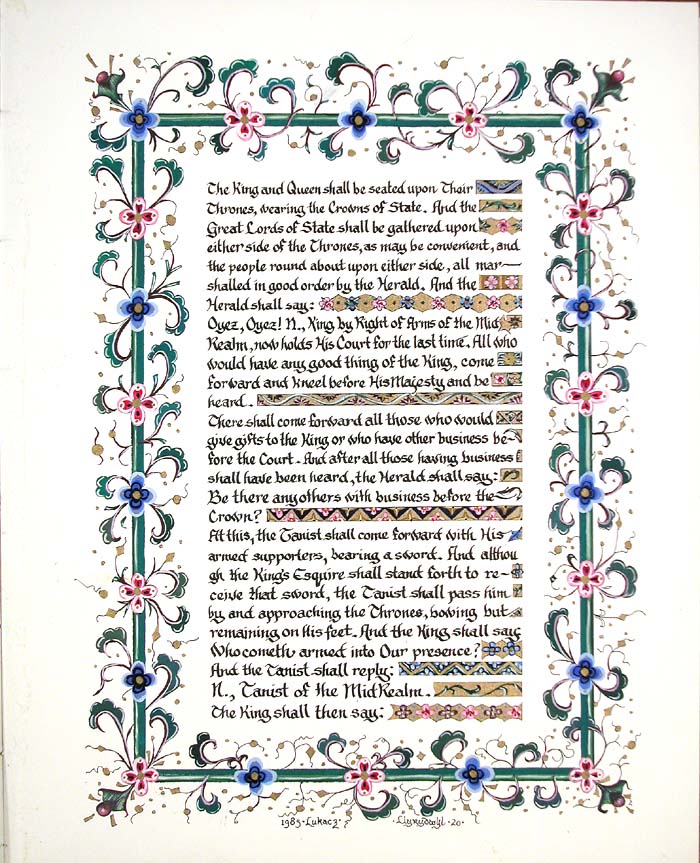 The King and Queen shall be seated upon Their
Thrones, wearing the Crowns of State. And the
Great Lords of State shall be gathered upon
either side of the Thrones, as may be convenient, and
the people round about upon either side, all mar-
shalled in good order by the Herald. And the
Herald shall say:
Oyez, Oyez! N., King by Right of Arms of the Mid
Realm, now holds His Court for the last time. All who
would have any good thing of the King, come
forward and kneel before His Majesty and be
heard.
There shall come forward all those who would
give gifts to the King or who have other business be-
fore the Court. And after all those having business
shall have been heard, the Herald shall say:
Be there any others with business before the
Crown?
At this, the Tanist shall come forward with His
armed supporters, bearing a sword. And althou
gh the King's Esquire shall stand forth to re-
ceive that sword, the Tanist shall pass him
by and approaching the Thrones, bowing but
remaining on his feet. And the King shall say:
Who cometh armed into Our presence?
And the Tanist shall reply:
N., Tanist of the MidRealm.
The King shall then say:
1985 · Lukacz ·
· 20 ·